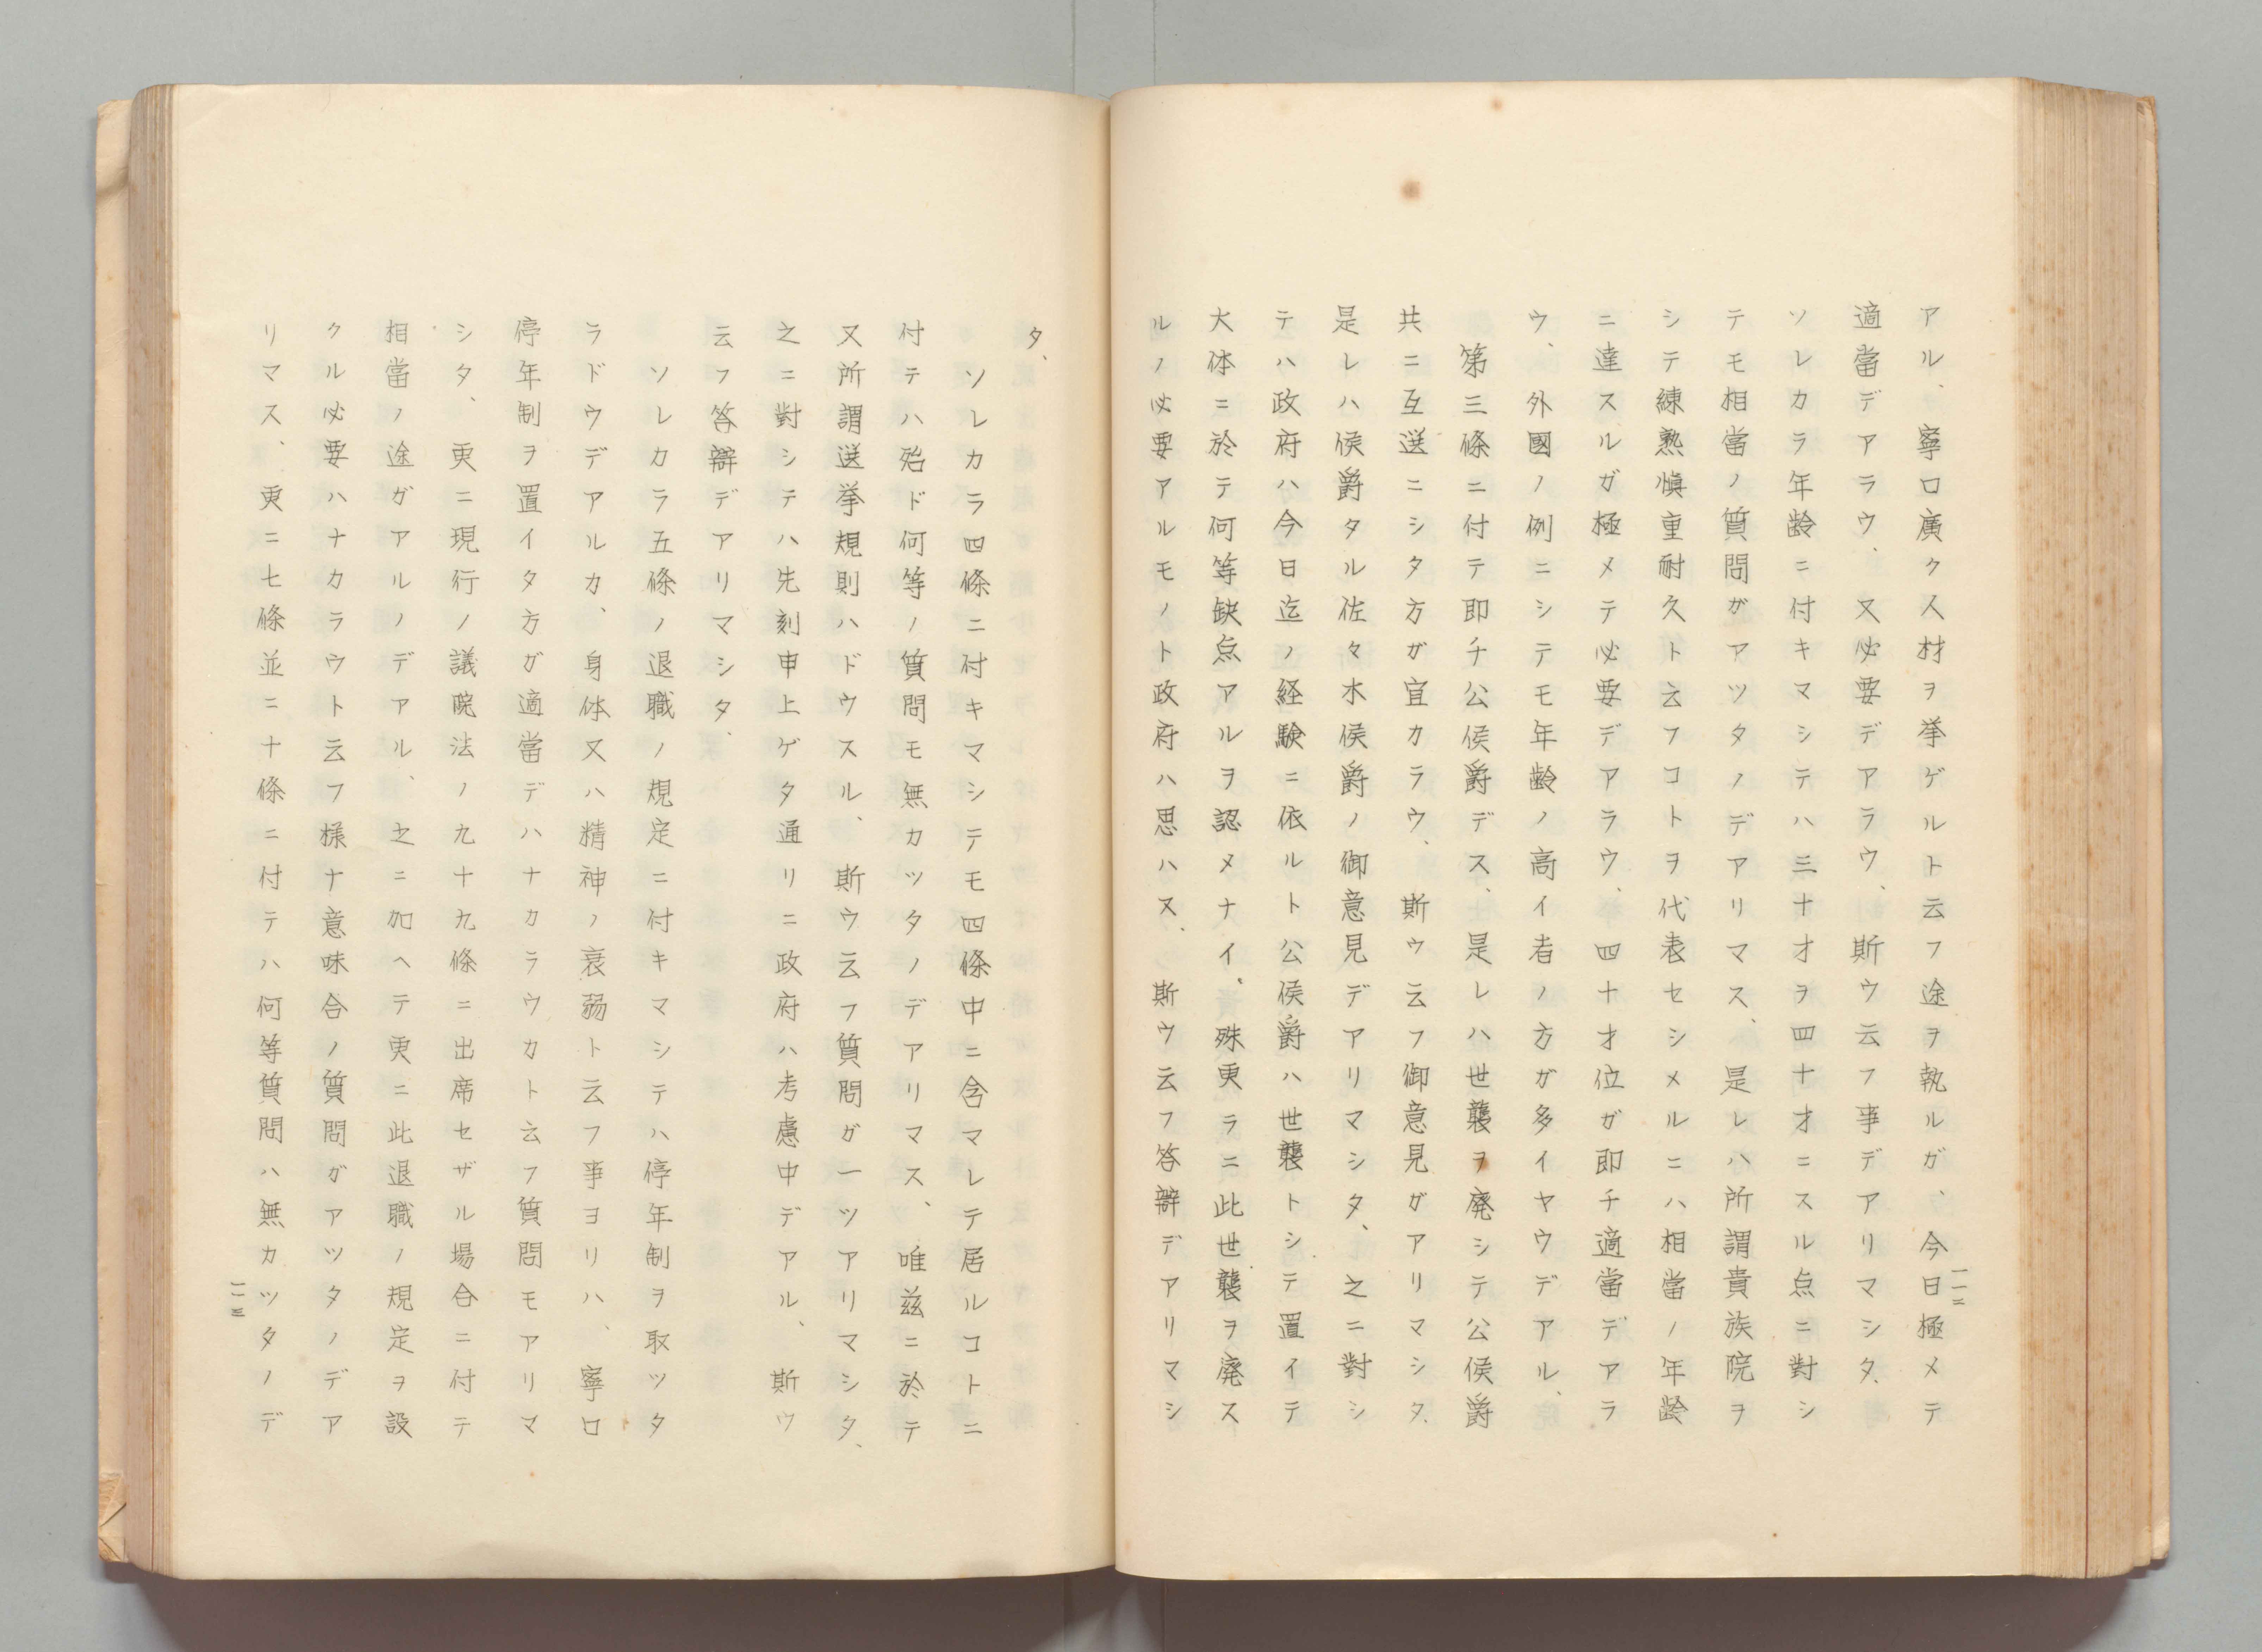 アル、寧ロ廣ク人材ヲ挙ゲルト云フ途ヲ執ルガ、今日極メテ
適當デアラウ、又必要デアラウ、斯ウ云フ事デアリマシタ、
ソレカラ年齢ニ付キマシテハ三十才ヲ四十才ニスル点ニ對シ
テモ相當ノ質問ガアツタノデアリマス、是レハ所謂貴族院ヲ
シテ練熟慎重耐久ト云フコトヲ代表セシメルニハ相當ノ年齢
ニ達スルガ極メテ必要デアラウ、四十才位ガ即チ適當デアラ
ウ、外國ノ例ニシテモ年齢ノ高イ者ノ方ガ多イヤウデアル、
第三條ニ付テ即チ公侯爵デス、是レハ世襲ヲ廃シテ公侯爵
共ニ互選ニシタ方ガ宜カラウ、斯ウ云フ御意見ガアリマシタ、
是レハ侯爵タル佐々木侯爵ノ御意見デアリマシタ、之ニ對シ
テハ政府ハ今日迄ノ経験ニ依ルト公侯爵ハ世襲トシテ置イテ
大体ニ於テ何等缺点アルヲ認メナイ、殊更ラニ此世襲ヲ廃ス
ルノ必要アルモノト政府ハ思ハヌ、斯ウ云フ答辯デアリマシ
一一二
タ、
ソレカラ四條ニ付キマシテモ四條中ニ含マレテ居ルコトニ
付テハ殆ド何等ノ質問モ無カツタノデアリマス、唯茲ニ於テ
又所謂選挙規則ハドウスル、斯ウ云フ質問ガ一ツアリマシタ、
之ニ對シテハ先刻申上ゲタ通リニ政府ハ考慮中デアル、斯ウ
云フ答辯デアリマシタ、
ソレカラ五條ノ退職ノ規定ニ付キマシテハ停年制ヲ取ツタ
ラドウデアルカ、身体又ハ精神ノ衰弱ト云フ事ヨリハ、寧ロ
停年制ヲ置イタ方ガ適當デハナカラウカト云フ質問モアリマ
シタ、更ニ現行ノ議院法ノ九十九條ニ出席セザル場合ニ付テ
相當ノ途ガアルノデアル、之ニ加ヘテ更ニ此退職ノ規定ヲ設
クル必要ハナカラウト云フ様ナ意味合ノ質問ガアツタノデア
リマス、更ニ七條並ニ十條ニ付テハ何等質問ハ無カツタノデ
一一三